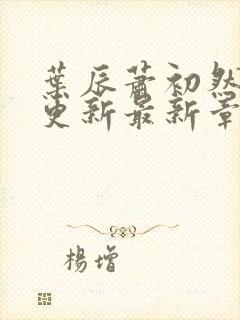 葉辰蕭初然
更新最新章
楊增